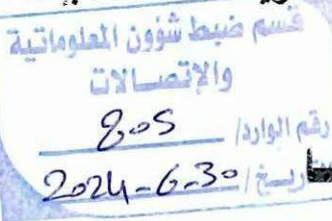 قسم ضبط شؤون المعلوماتية
والإتصالات
رقم الوارد/ 805
تاريخ/ 2024-6-30